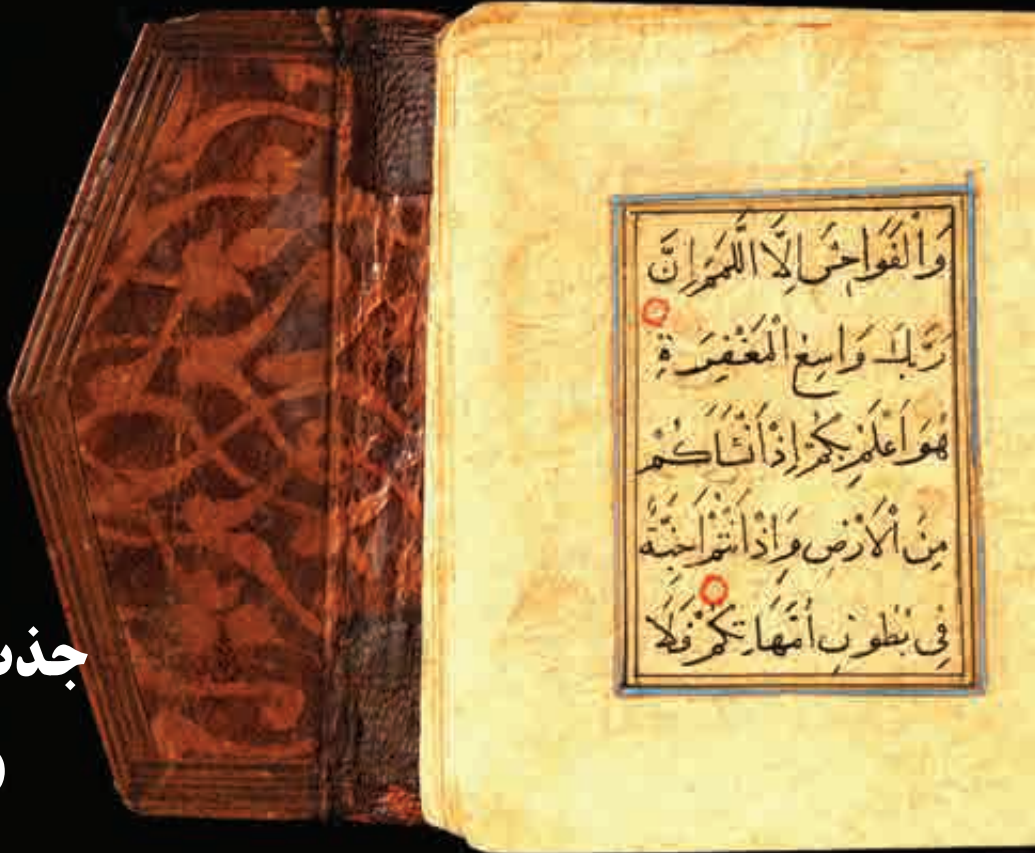 وَالْفَوَاحِشَ اِلَّا اللَّمَمَ اِنَّ
رَبَّكَ وَاسِعُ الْمَغْفِرَةِ
هُوَ اَعْلَمُ بِكُمْ اِذْ اَنْشَاَكُمْ
مِنَ الْاَرْضِ وَاِذْ اَنْتُمْ اَجِنَّةٌ
فِى بُطُونِ اُمَّهَاتِكُمْ فَلَا